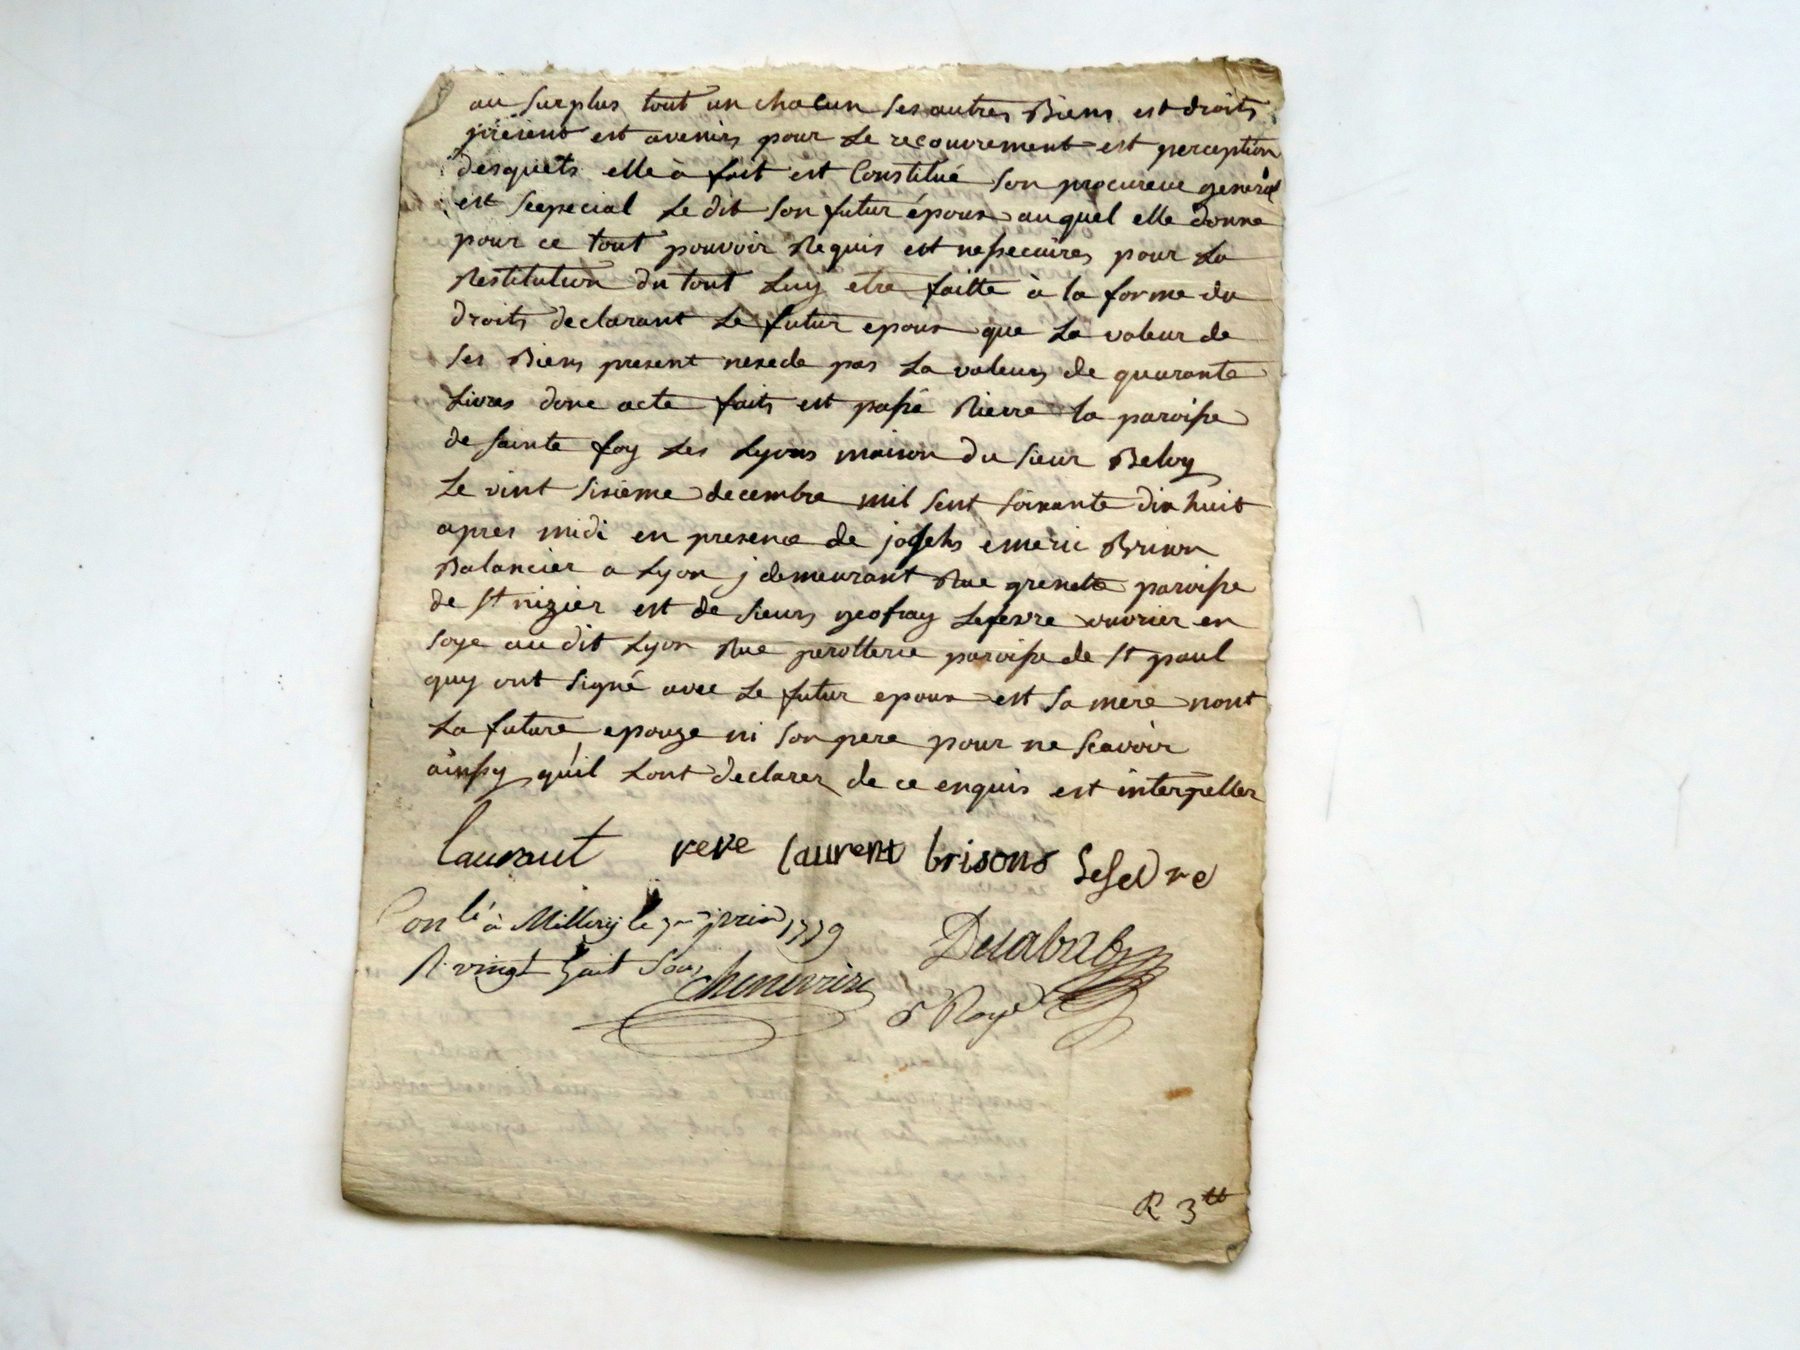 au surplus tout un chacun ses autres Biens est droits
présent est avenirs pour Le recouvrement est perception
desquets elle à fait est Constitué son procureur general
est scepecial Le dit son futur époux auquel elle donne
pour ce tout pouvoir Requis est nessecaires pour La
Restitution du tout Luy etre faitte à la forme du
droits declarant Le futur epoux que La valeur de
ses Biens present nexede pas La valeurs de quarante
Livres donc acte faits est passé Rierre la paroisse
de sainte foy Les Lyons maison du sieur
Le vint sixieme decembre mil sent soixante dix huit
apres midi en presence de emeric Brison
Balancier a Lyon j demeurant Rue grenette paroisse
de St nizier est de sieurs geofray Lefevre ouvrier en
soye au dit Lyon Rue paroisse de St paul
quy ont signé avec Le futur epoux est sa mere nont
La future epouze ni son pere pour ne scavoir
ainssy qu'il Lont declarer de ce enquis est interpeller
Lauraut veve Laurent brisons Lefevre
Conlé à Millery le 1779
R. vingt huit sous
R 3tt